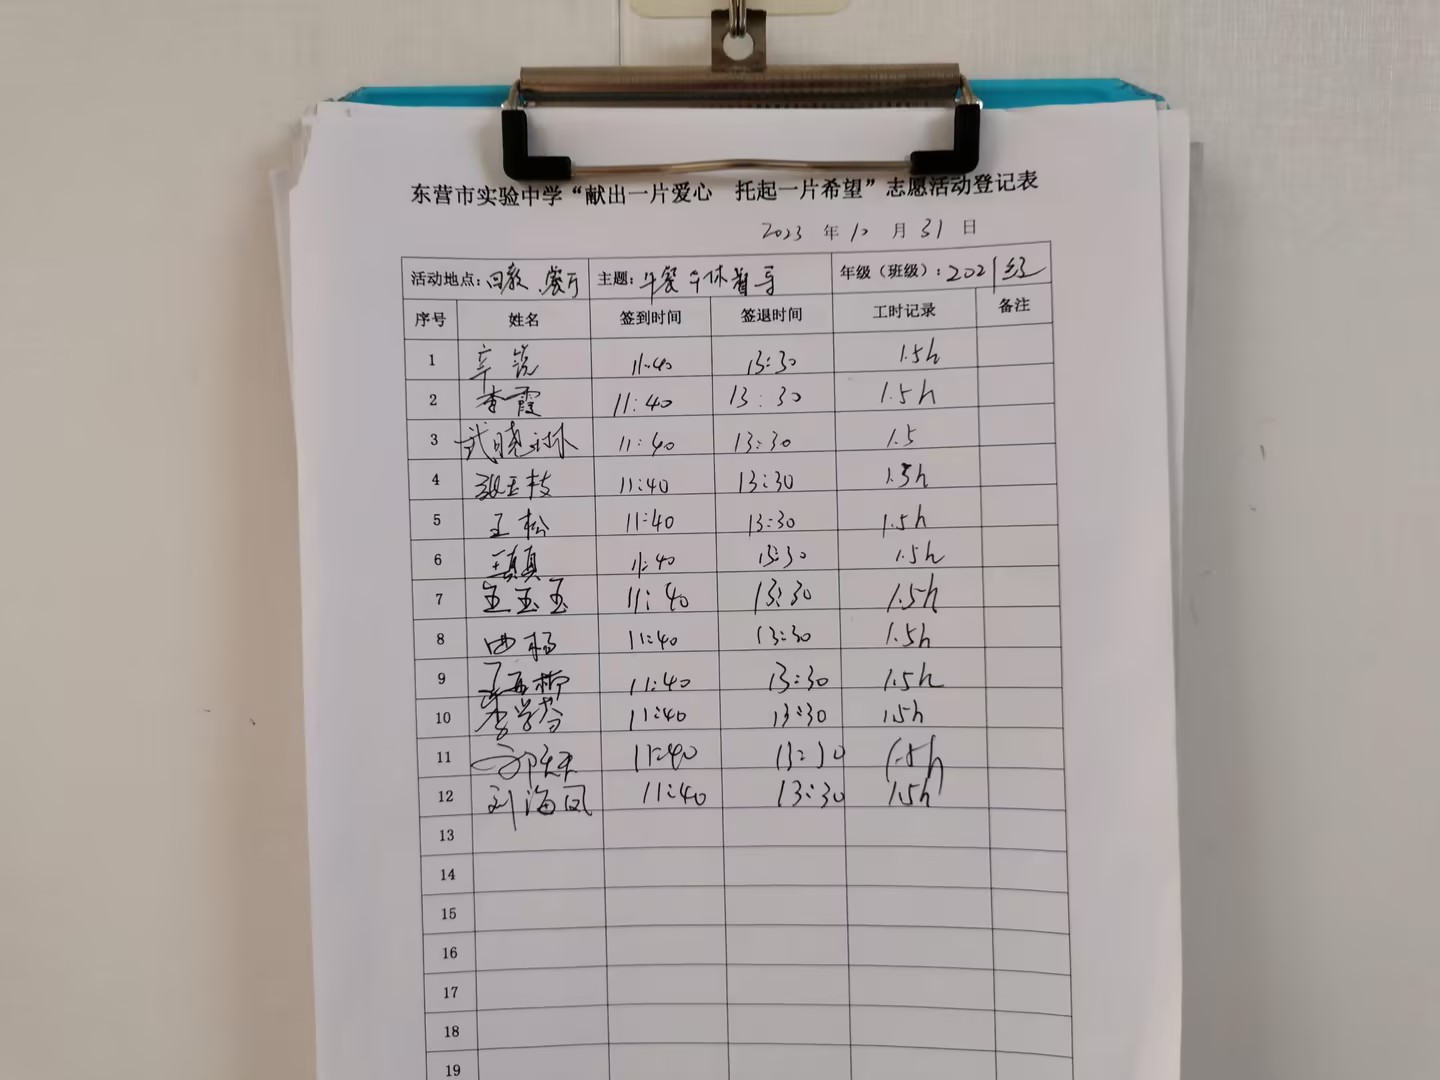 东营市实验中学“献出一片爱心 托起一片希望”志愿活动登记表
2023 年 10 月 31 日
活动地点: 餐厅 主题: 午餐午休督导 年级（班级）: 2021级
序号 姓名 签到时间 签退时间 工时记录 备注
1 辛锐 11:40 13:30 1.5h
2 李霞 11:40 13:30 1.5h
3 武晓琳 11:40 13:30 1.5
4 张玉枝 11:40 13:30 1.5h
5 王松 11:40 13:30 1.5h
6 王真真 11:40 13:30 1.5h
7 王玉玉 11:40 13:30 1.5h
8 11:40 13:30 1.5h
9 11:40 13:30 1.5h
10 李学芬 11:40 13:30 1.5h
11 11:40 13:30 1.5h
12 刘海凤 11:40 13:30 1.5h
13
14
15
16
17
18
19